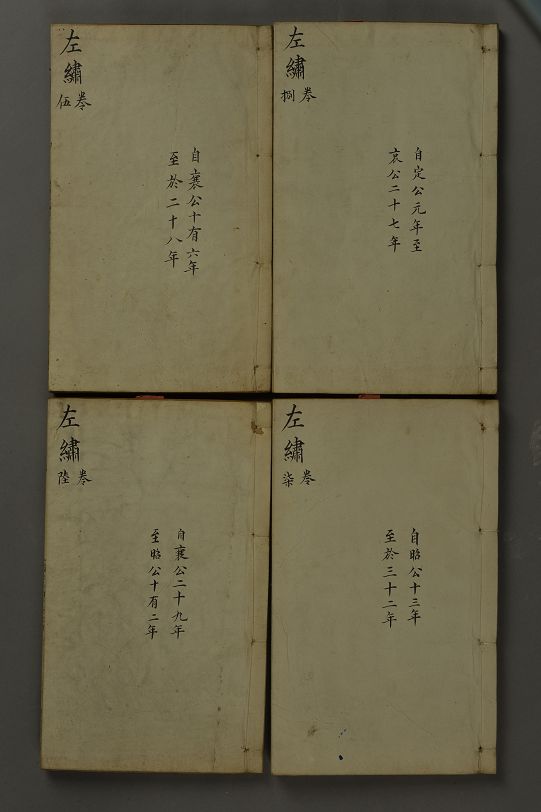 左繡
卷伍
自襄公十有六年
至於二十八年
左繡
卷捌
自定公元年至
哀公二十七年
左繡
卷陸
自襄公二十九年
至昭公十有二年
左繡
卷柒
自昭公十三年
至於三十二年